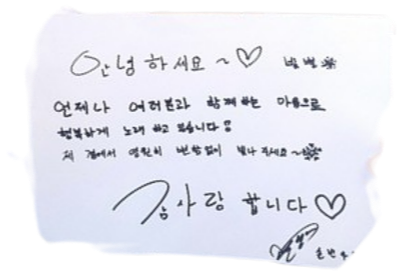 안녕하세요~♡ 별별☀
언제나 여러분과 함께하는 마음으로
행복하게 노래 하고 있습니다
제 곁에서 영원히 변함없이 빛나 주세요~☀
감사랑 합니다♡